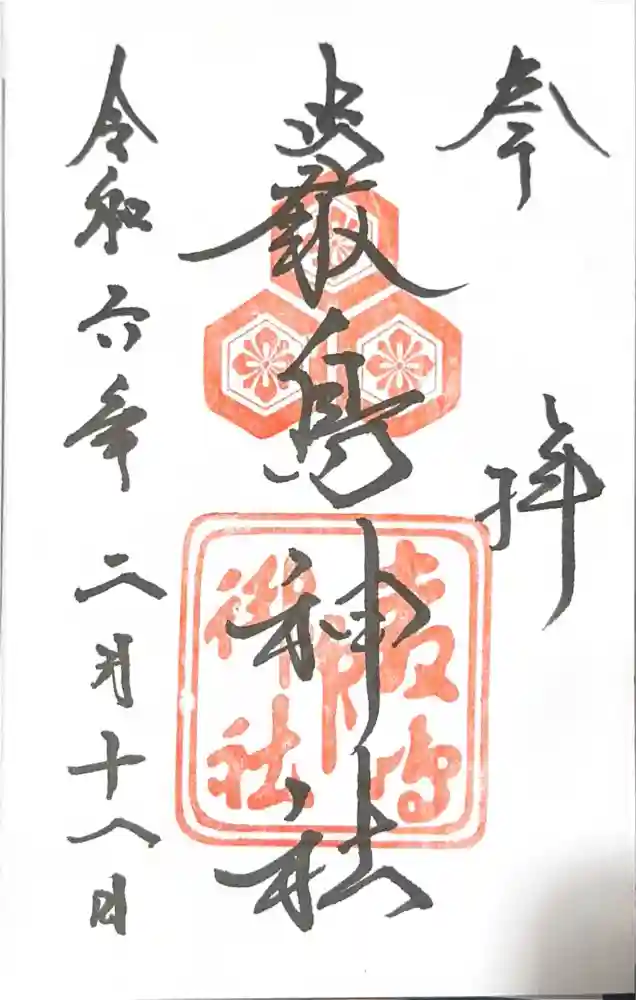 奉拝
厳島神社
厳島
神
御社
令和六年二月十八日